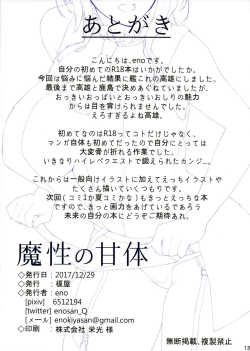 あとがき
こんにちは、enoです。
自分の初めてのR18本はいかがでしたか。
今回は悩みに悩んだ結果に艦これの高雄にしました。
最後まで高雄と鹿島で決めあぐねていましたが、
おっきいおっぱいとおっきいおしりの魅力
からは目を背けられませんでした。
えろすぎるよね高雄。
初めてなのはR18ってコトだけじゃなく、
マンガ自体も初めてだったので自分にとっては
大変骨が折れる作業でした。
いきなりハイレベクエストで鍛えられたカンジ…。
これからは一般向けイラストに加えてえっちイラストや
たくさん描いていくつもりです。
次回(コミ1か夏コミかな)もきっとえっちな本
ですので、きっと画力をあげているであろう
未来の自分の本にどうぞご期待あれ。
魔性の甘体
◇発行日：2017/12/29
◇発行　：榎屋
◇発行者：eno
[pixiv]　6512194
[twitter] enosan_Q
[メール] enokiyasan@gmail.com
◇印刷　：株式会社 栄光 様
無断掲載、複製禁止